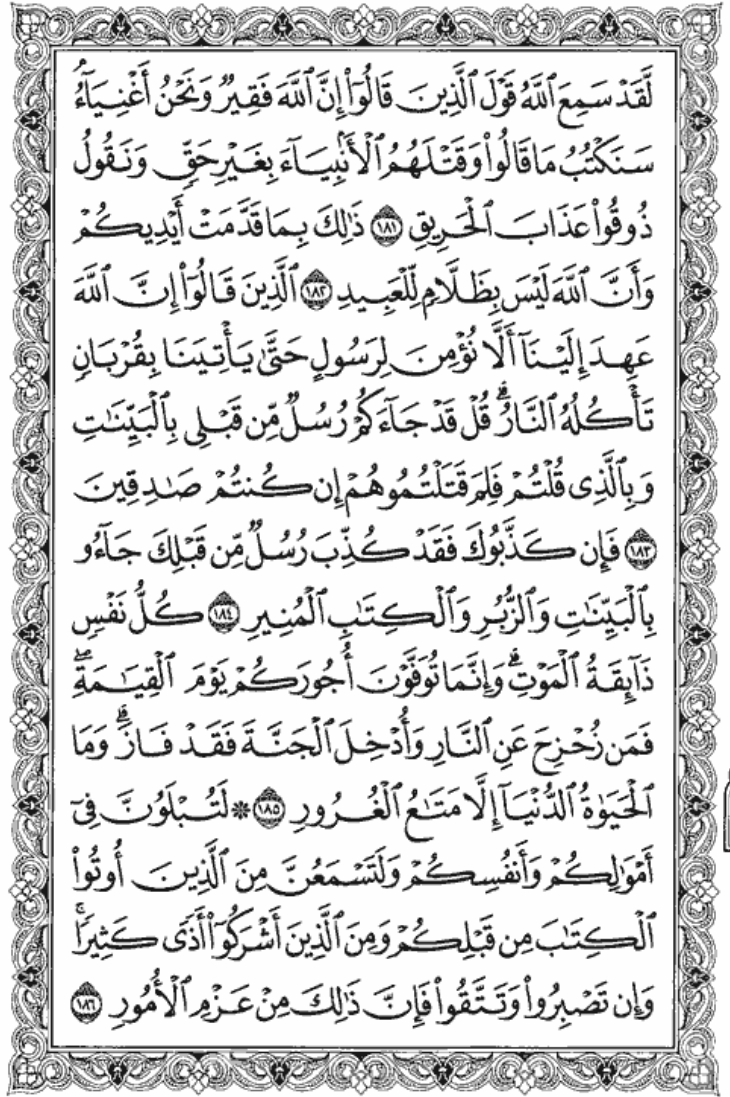 لَّقَدْ سَمِعَ ٱللَّهُ قَوْلَ ٱلَّذِينَ قَالُوٓا۟ إِنَّ ٱللَّهَ فَقِيرٌ وَنَحْنُ أَغْنِيَآءُ
سَنَكْتُبُ مَا قَالُوا۟ وَقَتْلَهُمُ ٱلْأَنۢبِيَآءَ بِغَيْرِ حَقٍّ وَنَقُولُ
ذُوقُوا۟ عَذَابَ ٱلْحَرِيقِ ١٨١ ذَٰلِكَ بِمَا قَدَّمَتْ أَيْدِيكُمْ
وَأَنَّ ٱللَّهَ لَيْسَ بِظَلَّامٍ لِّلْعَبِيدِ ١٨٢ ٱلَّذِينَ قَالُوٓا۟ إِنَّ ٱللَّهَ
عَهِدَ إِلَيْنَآ أَلَّا نُؤْمِنَ لِرَسُولٍ حَتَّىٰ يَأْتِيَنَا بِقُرْبَانٍ
تَأْكُلُهُ ٱلنَّارُ ۗ قُلْ قَدْ جَآءَكُمْ رُسُلٌ مِّن قَبْلِى بِٱلْبَيِّنَٰتِ
وَبِٱلَّذِى قُلْتُمْ فَلِمَ قَتَلْتُمُوهُمْ إِن كُنتُمْ صَٰدِقِينَ
١٨٣ فَإِن كَذَّبُوكَ فَقَدْ كُذِّبَ رُسُلٌ مِّن قَبْلِكَ جَآءُو
بِٱلْبَيِّنَٰتِ وَٱلزُّبُرِ وَٱلْكِتَٰبِ ٱلْمُنِيرِ ١٨٤ كُلُّ نَفْسٍ
ذَآئِقَةُ ٱلْمَوْتِ ۗ وَإِنَّمَا تُوَفَّوْنَ أُجُورَكُمْ يَوْمَ ٱلْقِيَٰمَةِ ۖ
فَمَن زُحْزِحَ عَنِ ٱلنَّارِ وَأُدْخِلَ ٱلْجَنَّةَ فَقَدْ فَازَ ۗ وَمَا
ٱلْحَيَوٰةُ ٱلدُّنْيَآ إِلَّا مَتَٰعُ ٱلْغُرُورِ ١٨٥ * لَتُبْلَوُنَّ فِىٓ
أَمْوَٰلِكُمْ وَأَنفُسِكُمْ وَلَتَسْمَعُنَّ مِنَ ٱلَّذِينَ أُوتُوا۟
ٱلْكِتَٰبَ مِن قَبْلِكُمْ وَمِنَ ٱلَّذِينَ أَشْرَكُوٓا۟ أَذًى كَثِيرًا ۚ
وَإِن تَصْبِرُوا۟ وَتَتَّقُوا۟ فَإِنَّ ذَٰلِكَ مِنْ عَزْمِ ٱلْأُمُورِ ١٨٦